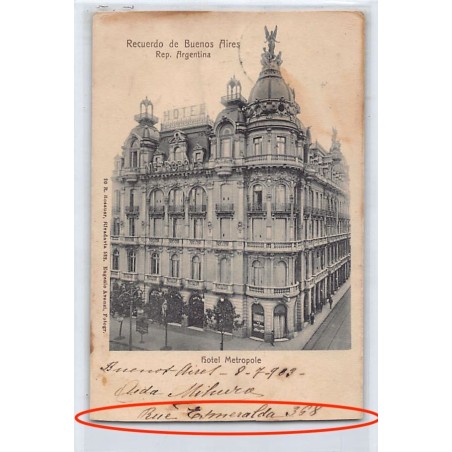 Recuerdo de Buenos Aires
Rep. Argentina
HOTEL
METROPOLE
Hotel Metropole
Buenos Aires - 8-7-903-
Aida
Rue Esmeralda 368